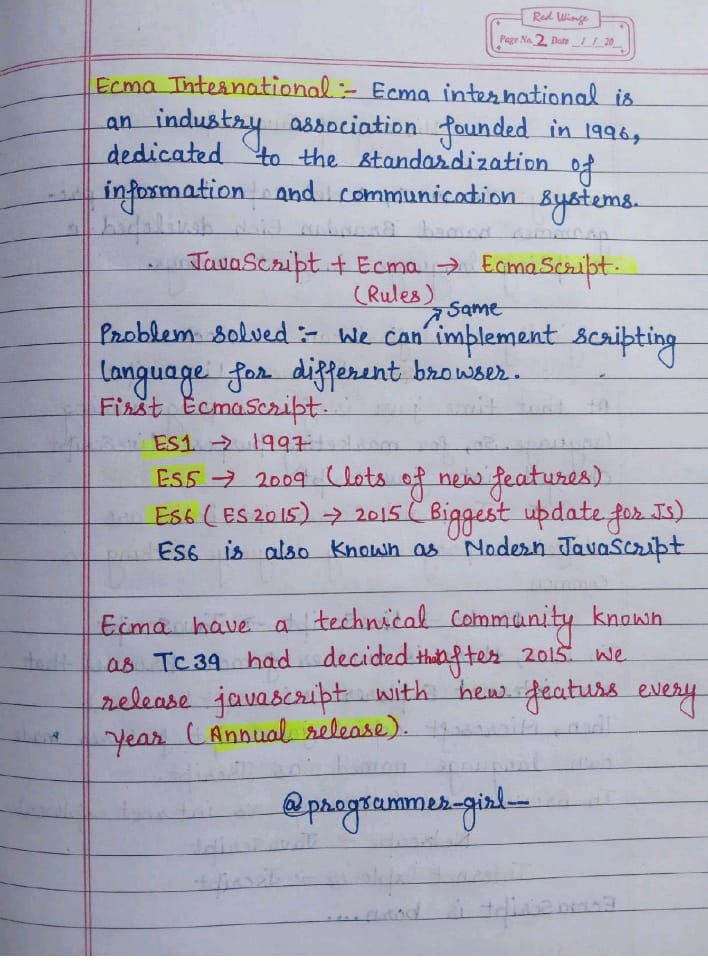 Red Winge
Page No. 2 Date __/__/20__
Ecma International :- Ecma international is
an industry association founded in 1996,
dedicated to the standardization of
information and communication systems.
JavaScript + Ecma → EcmaScript.
(Rules)
same
Problem solved :- We can implement scripting
language for different browser.
First EcmaScript.
ES1 → 1997
ES5 → 2009 (lots of new features)
ES6 (ES2015) → 2015 (Biggest update for Js)
ES6 is also known as Modern JavaScript
Ecma have a technical community known
as TC39 had decided that after 2015. we
release javascript with new featurs every
year (Annual release).
@programmer-girl—